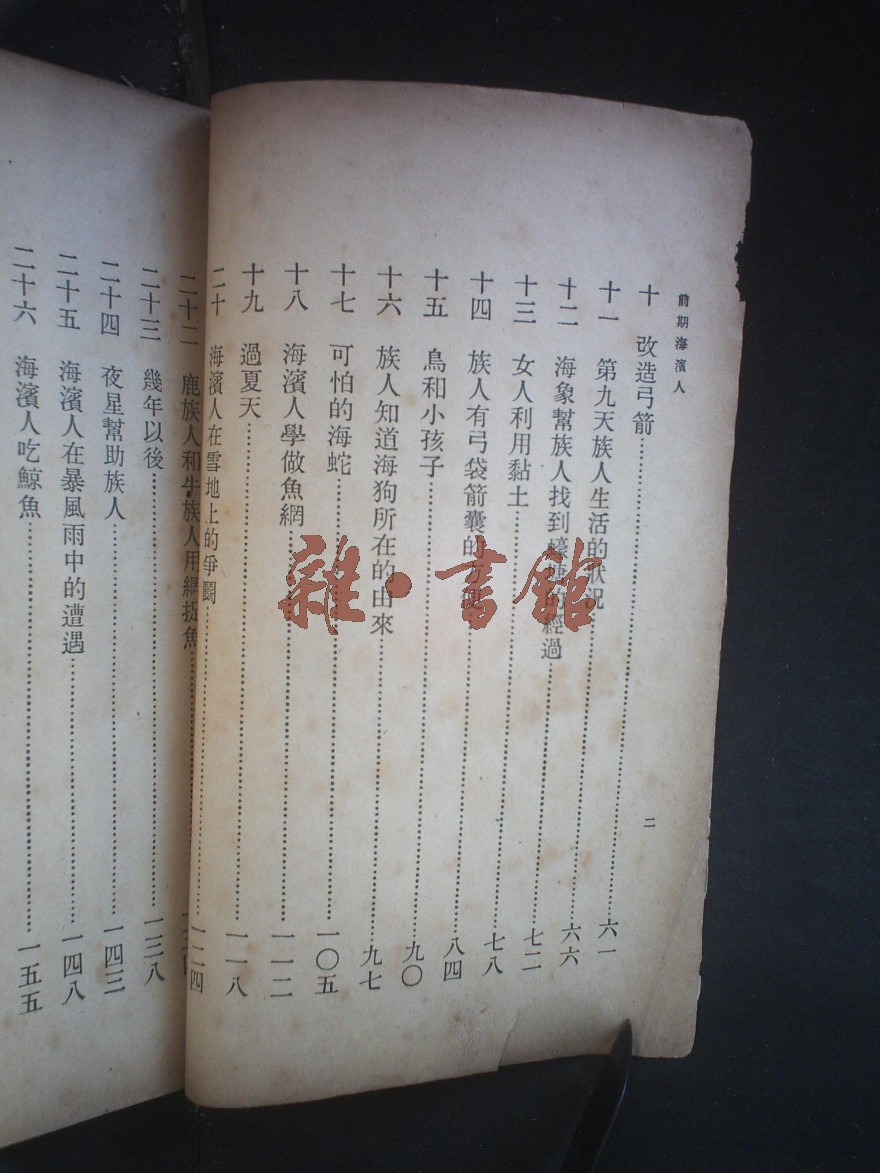 前期海濱人
二
十 改造弓箭……六一
十一 第九天族人生活的狀況……六六
十二 海象幫族人找到蠔的經過……七二
十三 女人利用黏土……七八
十四 族人有弓袋箭囊的……八四
十五 鳥和小孩子……九〇
十六 族人知道海狗所在的由來……九七
十七 可怕的海蛇……一〇五
十八 海濱人學做魚網……一一二
十九 過夏天……一一八
二十 海濱人在雪地上的爭鬪……一二四
二十二 鹿族人和牛族人用網捉魚……一三
二十三 幾年以後……一三八
二十四 夜星幫助族人……一四三
二十五 海濱人在暴風雨中的遭遇……一四八
二十六 海濱人吃鯨魚……一五五
雜·書館